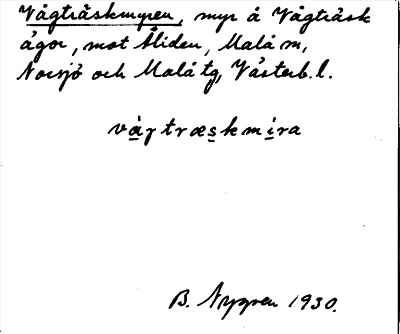 Vågträskmyren, myr å Vågträsk
ägor, mot Åliden, Malå sn,
Norsjö och Malå tg, Västerb. l.
vágtræskmíra
B. Nygren 1930.